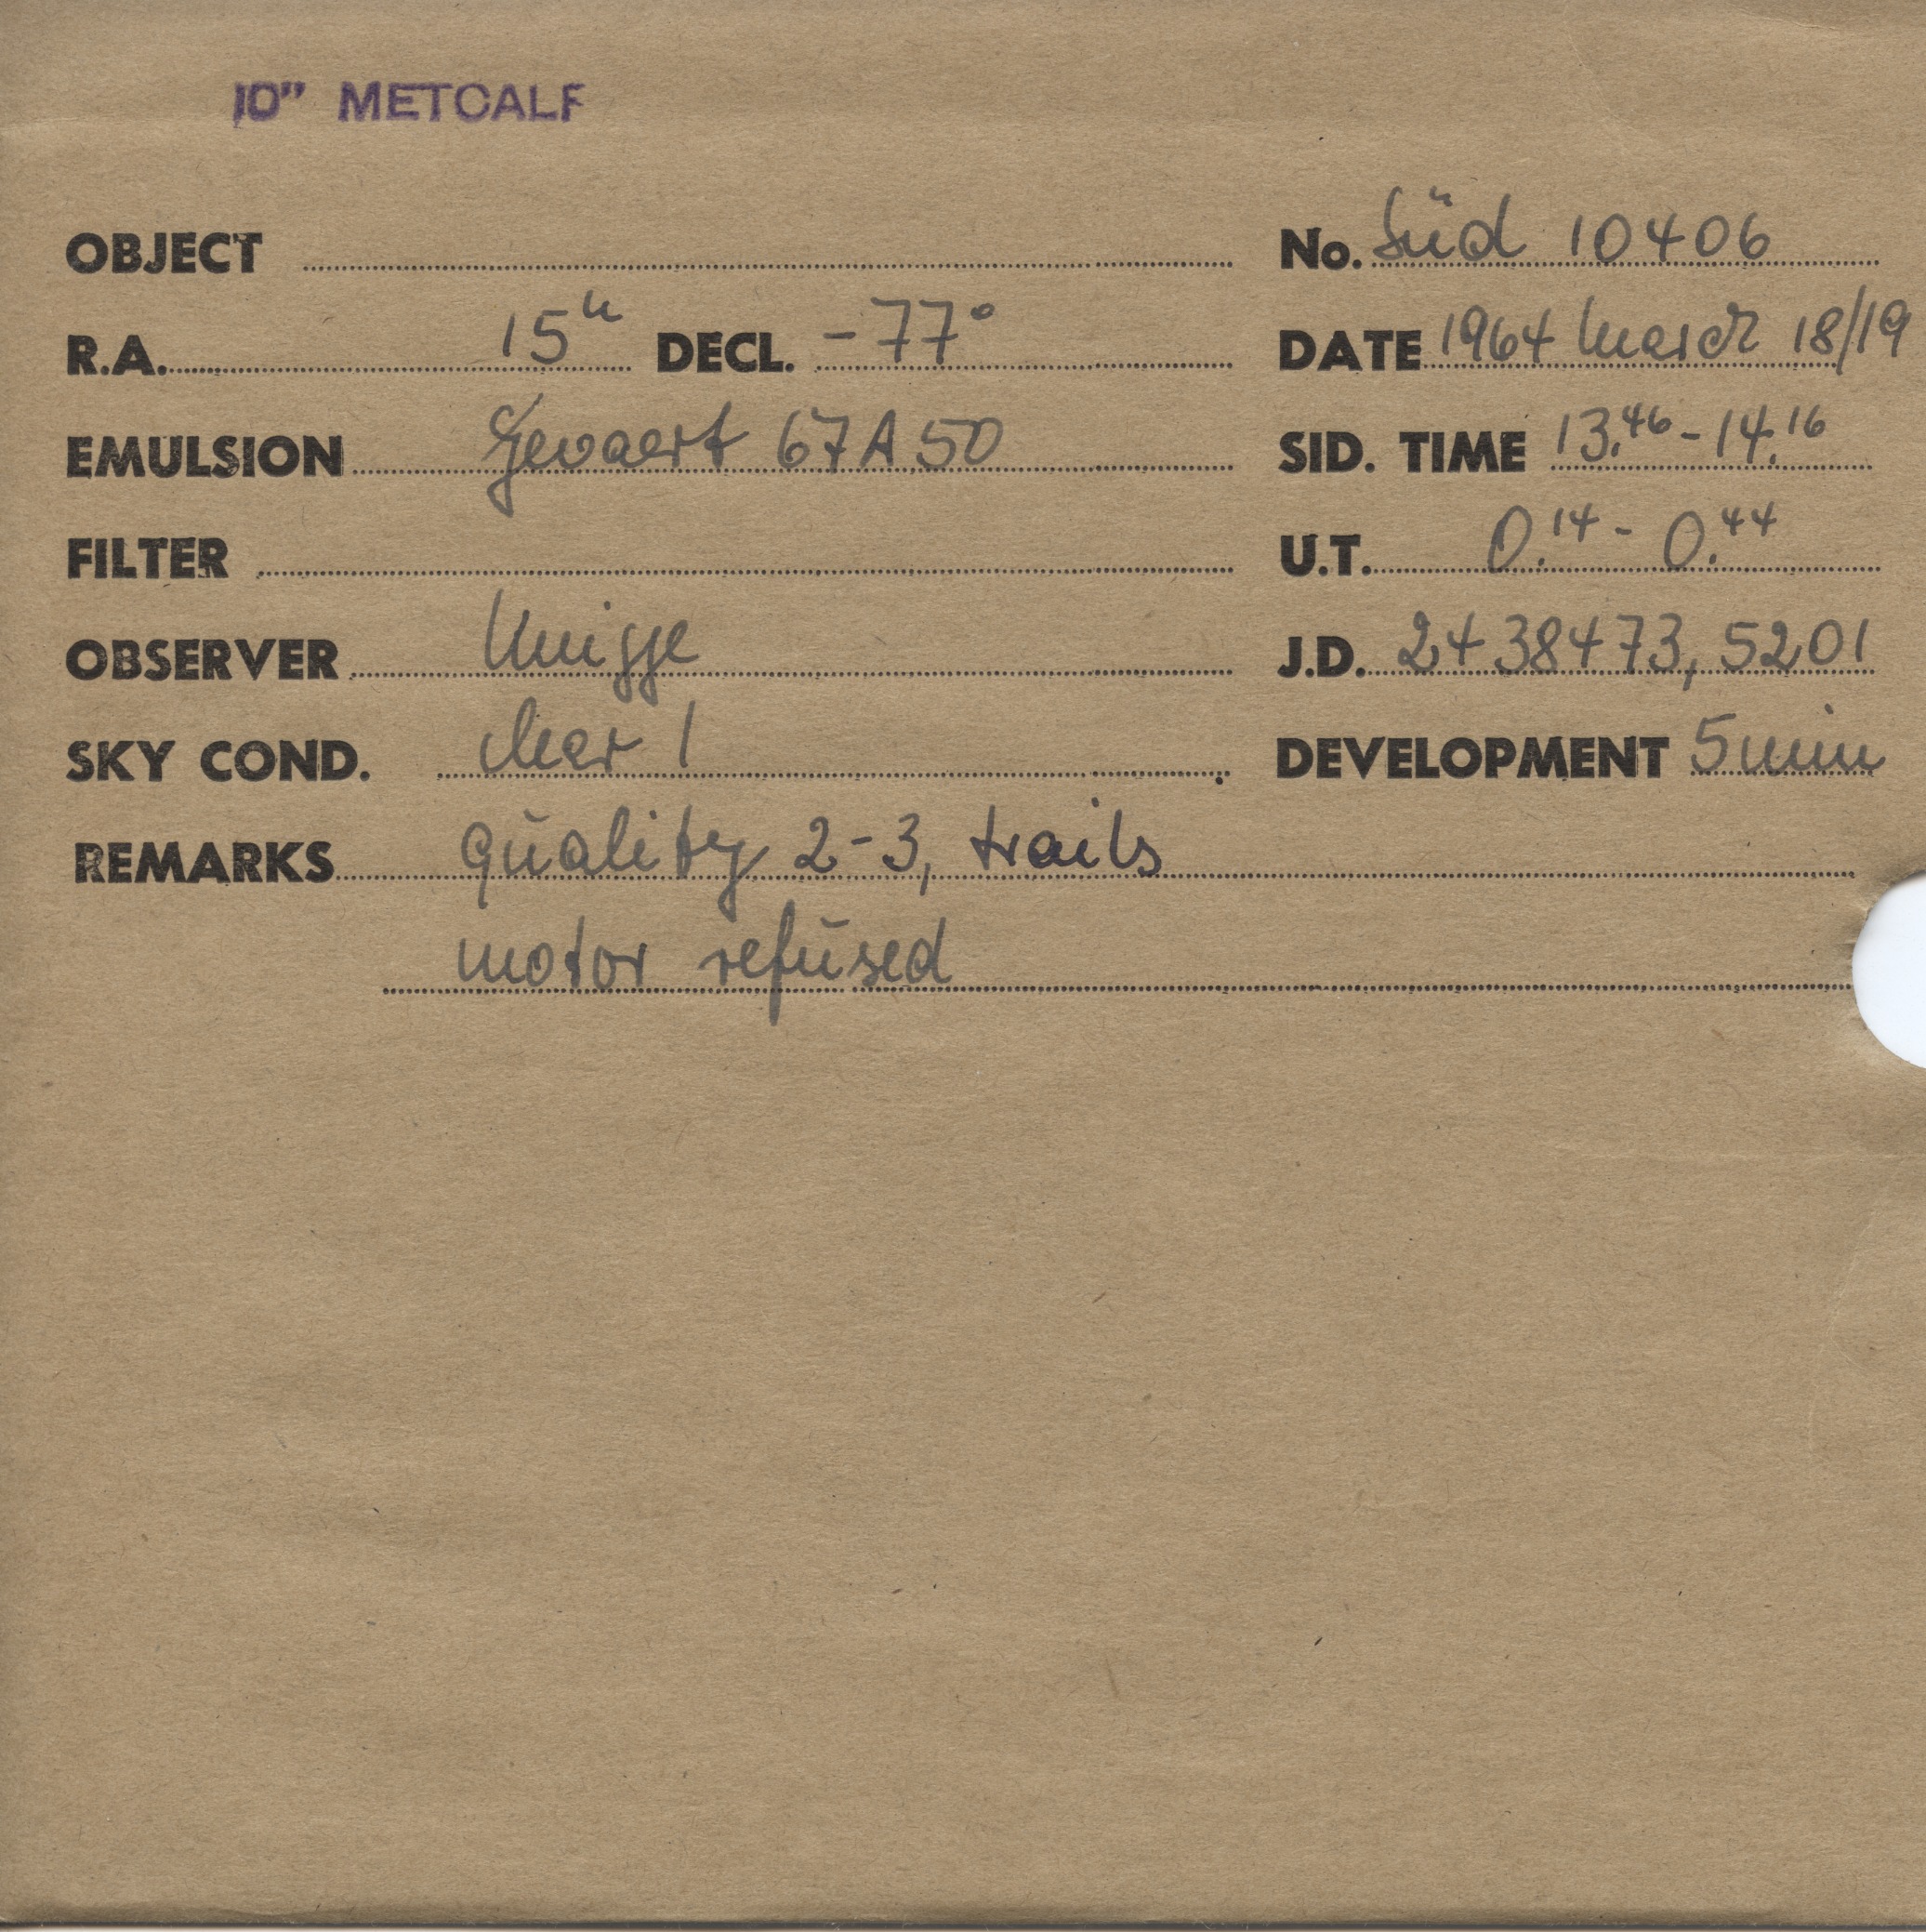 10" METCALF
OBJECT No. Süd 10406
R.A. 15h DECL. -77°  DATE 1964 March 18/19
EMULSION Gevaert 67A50 SID. TIME 13.46 - 14.16
FILTER U.T. 0.14 - 0.44
OBSERVER Knigge J.D. 2438473,5201
SKY COND. clear 1 DEVELOPMENT 5 min
REMARKS quality 2-3, trails
motor refused